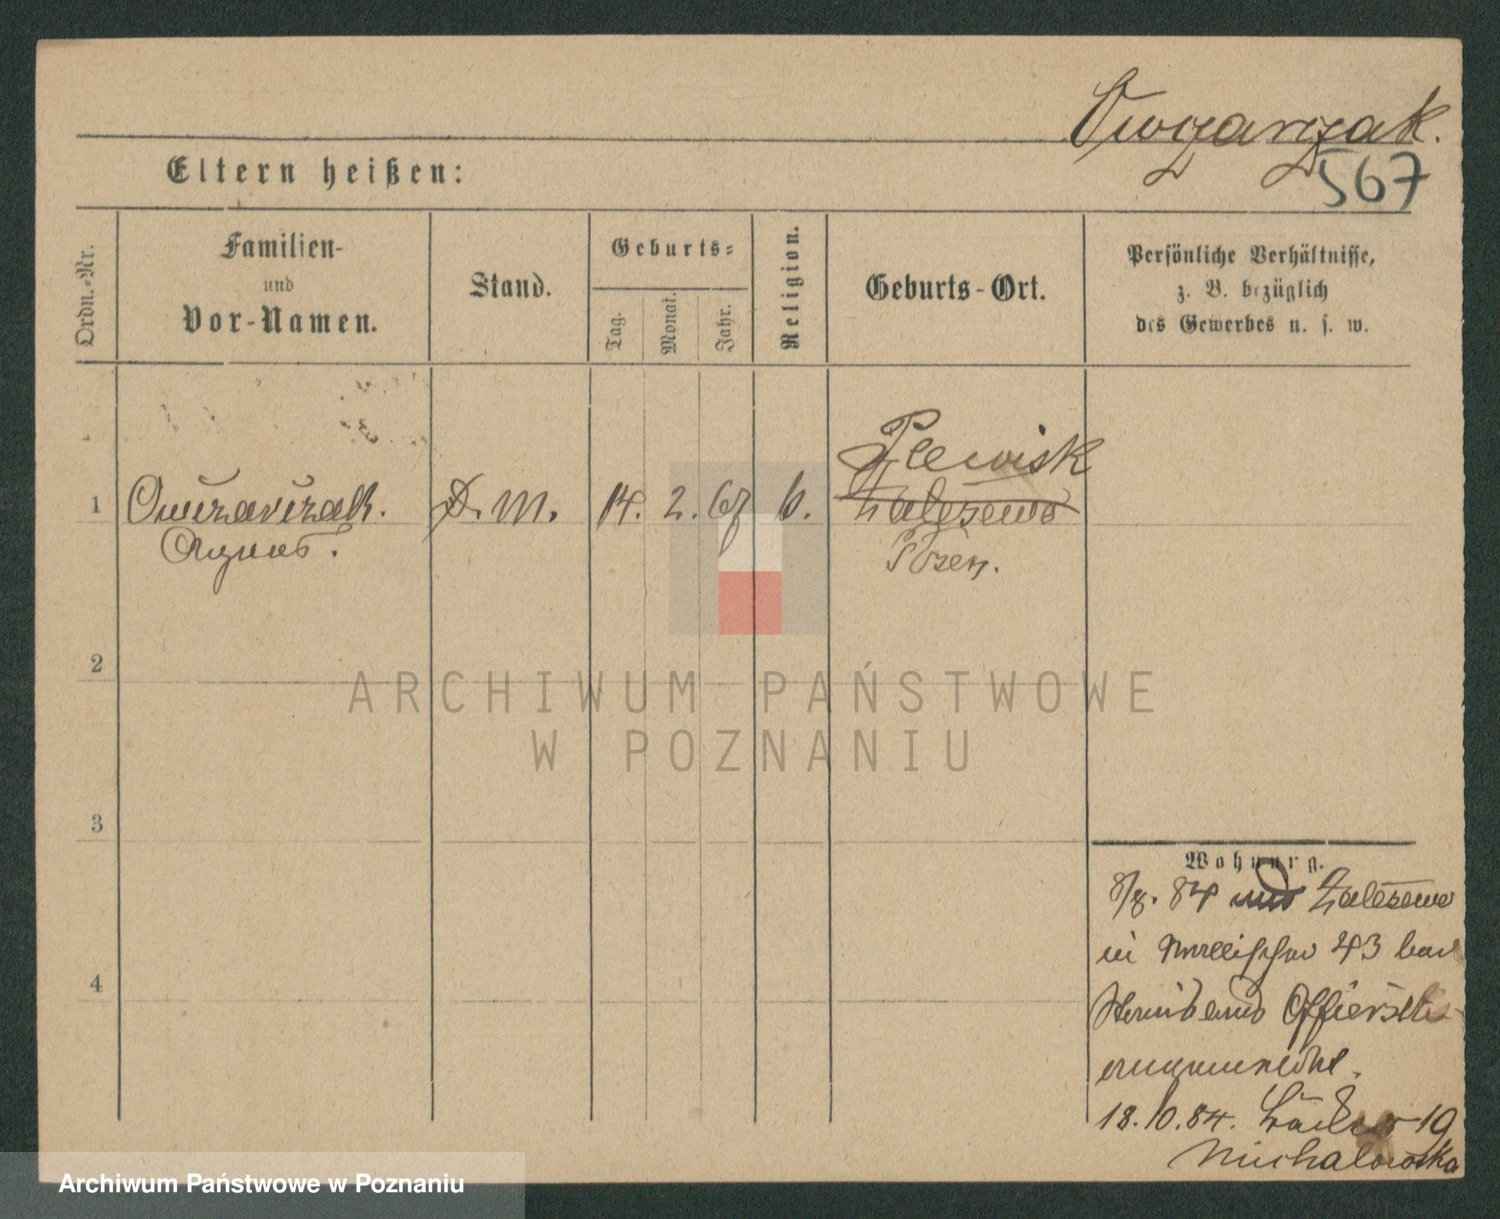 Owczarzak.
567
Eltern heißen:
Ordn.-Nr.
Familien-
und
Vor-Namen.
Stand.
Geburts-
Tag.
Monat.
Jahr.
Religion.
Geburts-Ort.
Persönliche Verhältnisse,
z. B. bezüglich
des Gewerbes u. s. w.
1
Owczarczak.
Agnes.
D. M.
14.
2.
67
k.
Plewisk
Zalesewo
Posen.
2
3
4
Wohnung.
8/8. 84 aus Zalesewo
in 43 bei
angemeldet.
18.10.84. Bäcker 19
Michalowska
ARCHIWUM PAŃSTWOWE
W POZNANIU
Archiwum Państwowe w Poznaniu